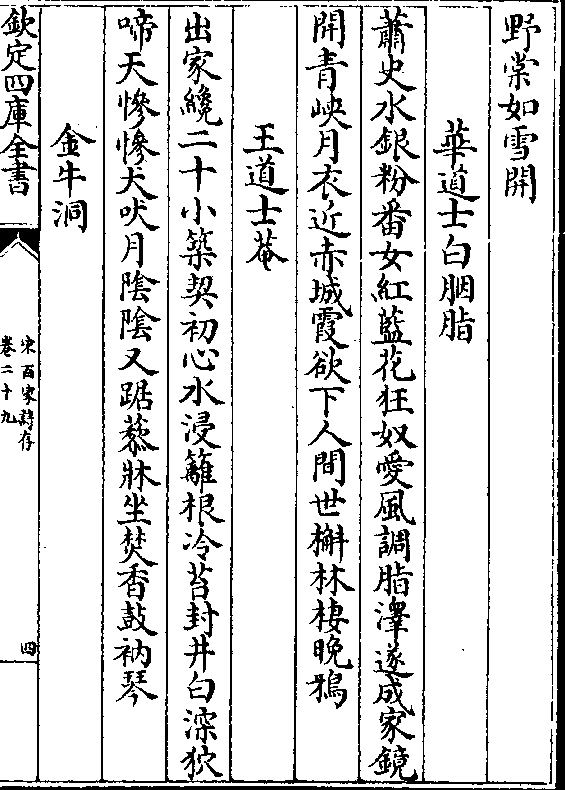 野棠如雪開
華道士白胭脂
蕭史水銀粉番女紅藍花狂奴愛風調脂澤遂成家鏡
開青峽月衣近赤城霞欲下人間世槲林棲晚鴉
王道士菴
出家纔二十小築契初心水浸籬根冷苔封井臼深狖
啼天慘慘犬吠月陰陰又踞藜牀坐焚香鼓衲琴
金牛洞
欽定四庫全書
宋百家詩存
卷二十九
四